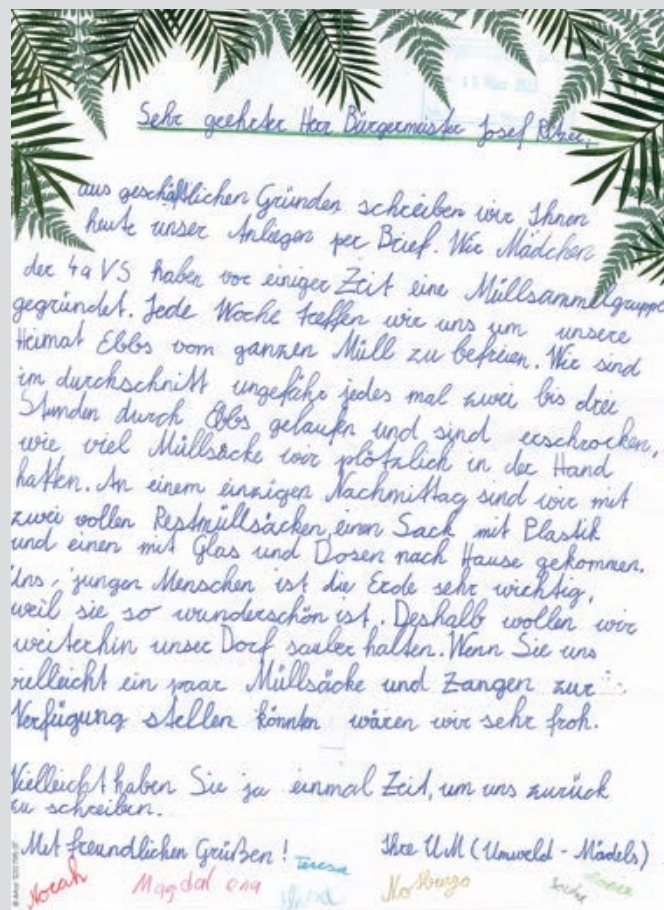 Sehr geehrter Herr Bürgermeister Josef Ritzer,
aus geschäftlichen Gründen schreiben wir Ihnen
heute unser Anliegen per Brief. Wir Mädchen
der 4a VS haben vor einiger Zeit eine Müllsammelgruppe
gegründet. Jede Woche treffen wir uns um unsere
Heimat Ebbs vom ganzen Müll zu befreien. Wir sind
im durchschnitt ungefähr jedes mal zwei bis drei
Stunden durch Ebbs gelaufen und sind erschrocken,
wie viel Müllsäcke wir plötzlich in der Hand
hatten. An einem einzigen Nachmittag sind wir mit
zwei vollen Restmüllsäcken, einen Sack mit Plastik
und einen mit Glas und Dosen nach Hause gekommen.
Uns, jungen Menschen ist die Erde sehr wichtig,
weil sie so wunderschön ist. Deshalb wollen wir
weiterhin unser Dorf sauber halten. Wenn Sie uns
vielleicht ein paar Müllsäcke und Zangen zur
Verfügung stellen könnten wären wir sehr froh.
Vielleicht haben Sie ja einmal Zeit, um uns zurück
zu schreiben.
Met freundlichen Grüßen! Ihre UM (Umweld - Mädels)
Norah Magdalena Teresa